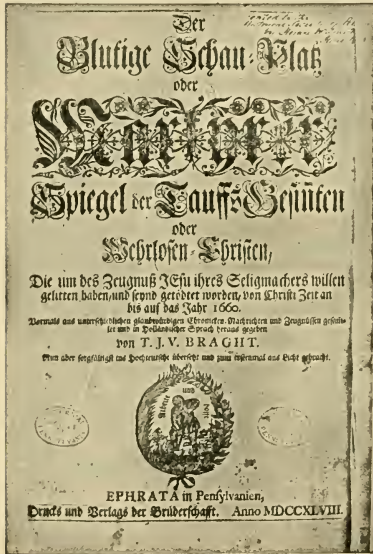 Der
Blutige Schau-Platz
oder
Martyrer
Spiegel der Tauffs-Gesinten
oder
Wehrlosen-Christen,
Die um des Zeugnuß JEsu ihres Seligmachers willen
gelitten haben, und seynd getödtet worden, von Christi Zeit an
bis auf das Jahr 1660.
Vormals aus unterschiedlichen glaubwürdigen Chronicken, Nachrichten und Zeugnüssen gesamlet
und in Holländischer Sprach heraus gegeben
von T. J. V. BRAGHT.
Nun aber sorgfältigst ins Hochteutsche übersetzt und zum erstenmal ans Licht gebracht.
Arbeite und hoffe
EPHRATA in Pensylvanien,
Drucks und Verlags der Brüderschafft. Anno MDCCXLVIII.